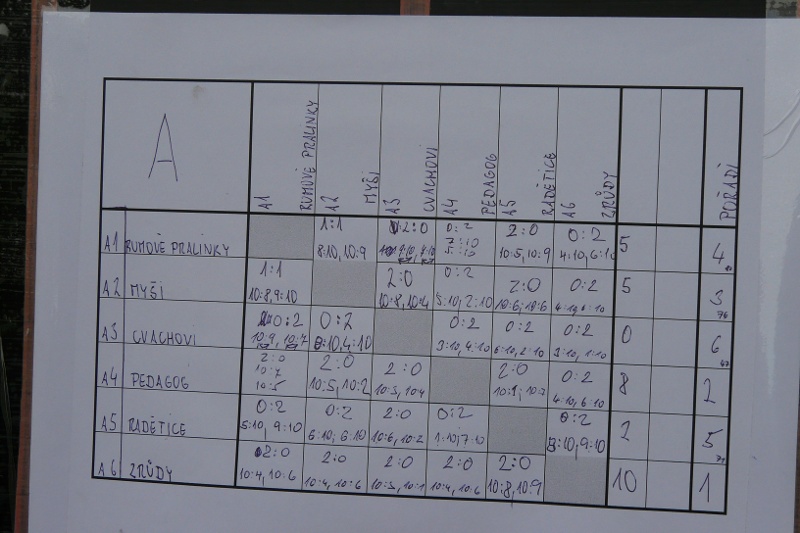 A
A1 RUMOVÉ PRALINKY
A2 MYŠI
A3 CVACHOVI
A4 PEDAGOG
A5 RADĚTICE
A6 ZRŮDY
POŘADÍ
A1 RUMOVÉ PRALINKY 1:1 2:0 0:2 2:0 0:2 5 4
8:10, 10:9 7:10 10:5, 10:9 4:10, 6:10
5:10
A2 MYŠI 1:1 2:0 0:2 2:0 0:2 5 3
10:8, 9:10 10:8, 10:4 5:10, 2:10 10:6, 10:6
A3 CVACHOVI 0:2 0:2 0:2 0:2 0:2 0 6
10:7 4:10 3:10, 4:10 6:10, 2:10 1:10
A4 PEDAGOG 2:0 2:0 2:0 2:0 0:2 8 2
10:7 10:5, 10:2 10:3, 10:4 10:1, 10:7 4:10, 6:10
10:5
A5 RADĚTICE 0:2 0:2 2:0 0:2 0:2 2 5
5:10, 9:10 6:10, 6:10 10:6, 10:2 1:10, 7:10 8:10, 9:10
A6 ZRŮDY 2:0 2:0 2:0 2:0 2:0 10 1
10:4, 10:6 10:4, 10:6 10:3, 10:1 10:4, 10:6 10:8, 10:9